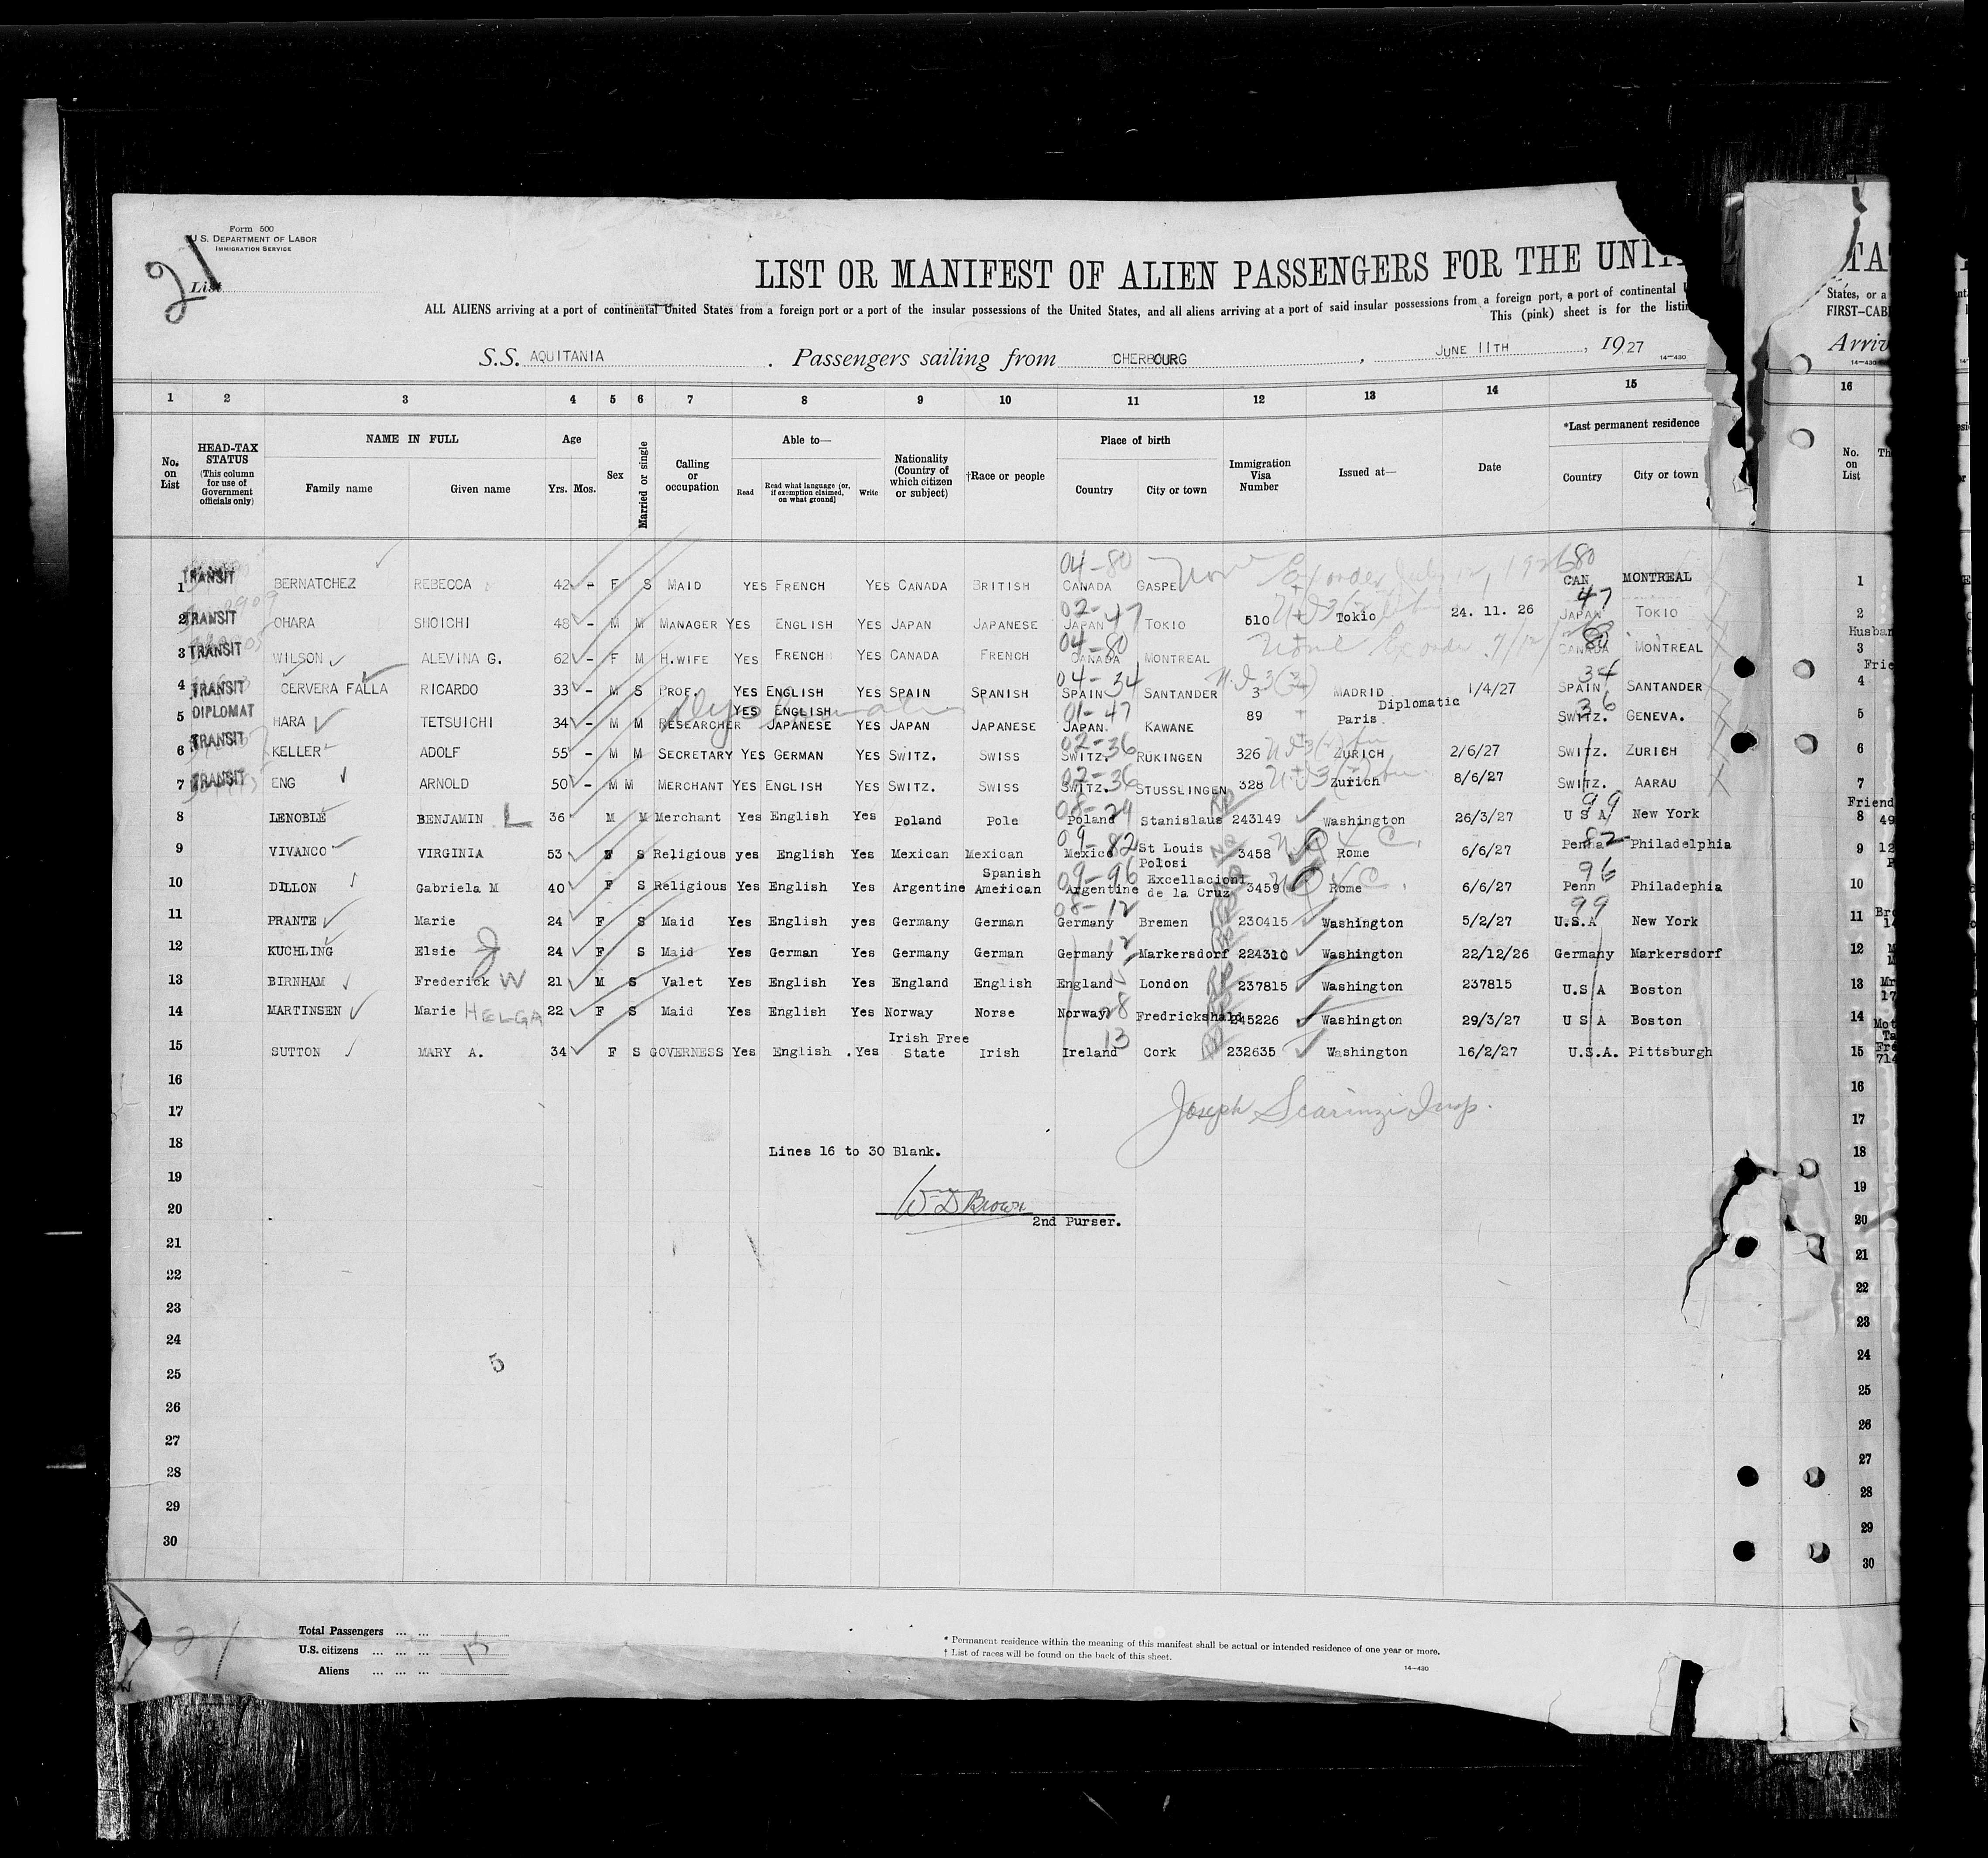 Form 500
U S. DEPARTMENT OF LABOR
IMMIGRATION SERVICE
21
List
LIST OR MANIFEST OF ALIEN PASSENGERS FOR THE UNIT
ALL ALIENS arriving at a port of continental United States from a foreign port or a port of the insular possessions of the United States, and all aliens arriving at a port of said insular possessions from a foreign port, a port of continental U
This (pink) sheet is for the listin
S.S. AQUITANIA . Passengers sailing from CHERBOURG , JUNE 11TH , 1927 14—430
1 2 3 4 5 6 7 8 9 10 11 12 13 14 15
No. on List
HEAD-TAX STATUS (This column for use of Government officials only)
NAME IN FULL Family name Given name
Age Yrs. Mos.
Sex
Married or single
Calling or occupation
Able to— Read Read what language [or, if exemption claimed, on what ground] Write
Nationality (Country of which citizen or subject)
†Race or people
Place of birth Country City or town
Immigration Visa Number
Issued at—
Date
*Last permanent residence Country City or town
04-80 None Ex order July 12, 1926 80
1 TRANSIT BERNATCHEZ REBECCA 42 - F S MAID YES FRENCH YES CANADA BRITISH CANADA GASPE CAN. MONTREAL
02-47 47
2 TRANSIT OHARA SHOICHI 48 - M M MANAGER YES ENGLISH YES JAPAN JAPANESE JAPAN TOKIO 510 Tokio 24. 11. 26 JAPAN TOKIO
04-80 None Ex order 7/12/ 80
3 TRANSIT WILSON ALEVINA G. 62 - F M H.WIFE YES FRENCH YES CANADA FRENCH CANADA MONTREAL CANADA MONTREAL
04-34 34
4 TRANSIT CERVERA FALLA RICARDO 33 - M S PROF. YES ENGLISH YES SPAIN SPANISH SPAIN SANTANDER 3 MADRID 1/4/27 SPAIN SANTANDER
YES ENGLISH 01-47 Diplomatic 36
5 DIPLOMAT HARA TETSUICHI 34 - M M RESEARCHER JAPANESE YES JAPAN JAPANESE JAPAN. KAWANE 89 Paris SWITZ. GENEVA.
02-36
6 TRANSIT KELLER ADOLF 55 - M M SECRETARY YES GERMAN YES SWITZ. SWISS SWITZ. RUKINGEN 326 ZURICH 2/6/27 SWITZ. ZURICH
02-36
7 TRANSIT ENG ARNOLD 50 - M M MERCHANT YES ENGLISH YES SWITZ. SWISS SWITZ. STUSSLINGEN 328 Zurich 8/6/27 SWITZ. AARAU
99
8 LENOBLE BENJAMIN L 36 M M Merchant Yes English Yes Poland Pole Poland Stanislaus 243149 Washington 26/3/27 U S A New York
09-82 82
9 VIVANCO VIRGINIA 53 F S Religious yes English Yes Mexican Mexican Mexico St Louis Polosi 3458 Rome 6/6/27 Penna Philadelphia
09-96 96
10 DILLON Gabriela M 40 F S Religious Yes English Yes Argentine Spanish American Argentine Excellacioni de la Cruz 3459 Rome 6/6/27 Penn Philadephia
08-12 99
11 PRANTE Marie 24 F S Maid Yes English yes Germany German Germany Bremen 230415 Washington 5/2/27 U.S.A New York
12
12 KUCHLING Elsie J 24 F S Maid Yes German Yes Germany German Germany Markersdorf 224310 Washington 22/12/26 Germany Markersdorf
13 BIRNHAM Frederick W 21 M S Valet Yes English Yes England English England London 237815 Washington 237815 U.S A Boston
28
14 MARTINSEN Marie HELGA 22 F S Maid Yes English Yes Norway Norse Norway Fredrickshald 245226 Washington 29/3/27 U S A Boston
13
15 SUTTON MARY A. 34 F S GOVERNESS Yes English . Yes Irish Free State Irish Ireland Cork 232635 Washington 16/2/27 U.S.A. Pittsburgh
16
17 Joseph Scarinzi Insp.
18 Lines 16 to 30 Blank.
19
20 Wm D Brown
2nd Purser.
21
22
23
24
5
25
26
27
28
29
30
Total Passengers ... ...
U.S. citizens ... ... ... 15
Aliens ... ... ...
21
* Permanent residence within the meaning of this manifest shall be actual or intended residence of one year or more.
† List of races will be found on the back of this sheet.
14—430
TA
States, or a
FIRST-CAB
Arriv
14—430
16
No. on List
Th
1
2
Husban
3
Frie
4
5
6
7
Friend
8 49
9 12
10
11 Bro
12
13 Mr
17
14 Mot
Ta
Fre
15 714
16
17
18
19
20
21
22
23
24
25
26
27
28
29
30